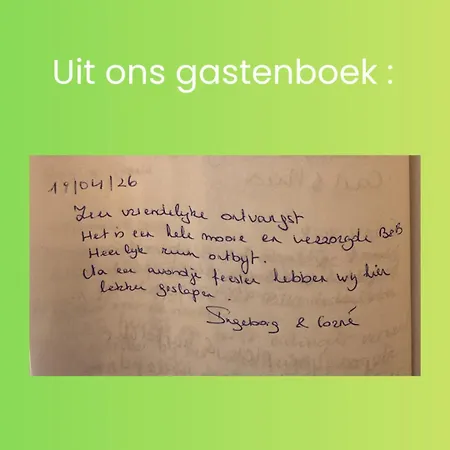 Uit ons gastenboek :
19/04/26
Zeer vriendelijke ontvangst
Het is een hele mooie en verzorgde B&B
Heerlijk ruim ontbijt.
Na een avondje feesten hebben wij hier
lekker geslapen.
Ingeborg & Corné